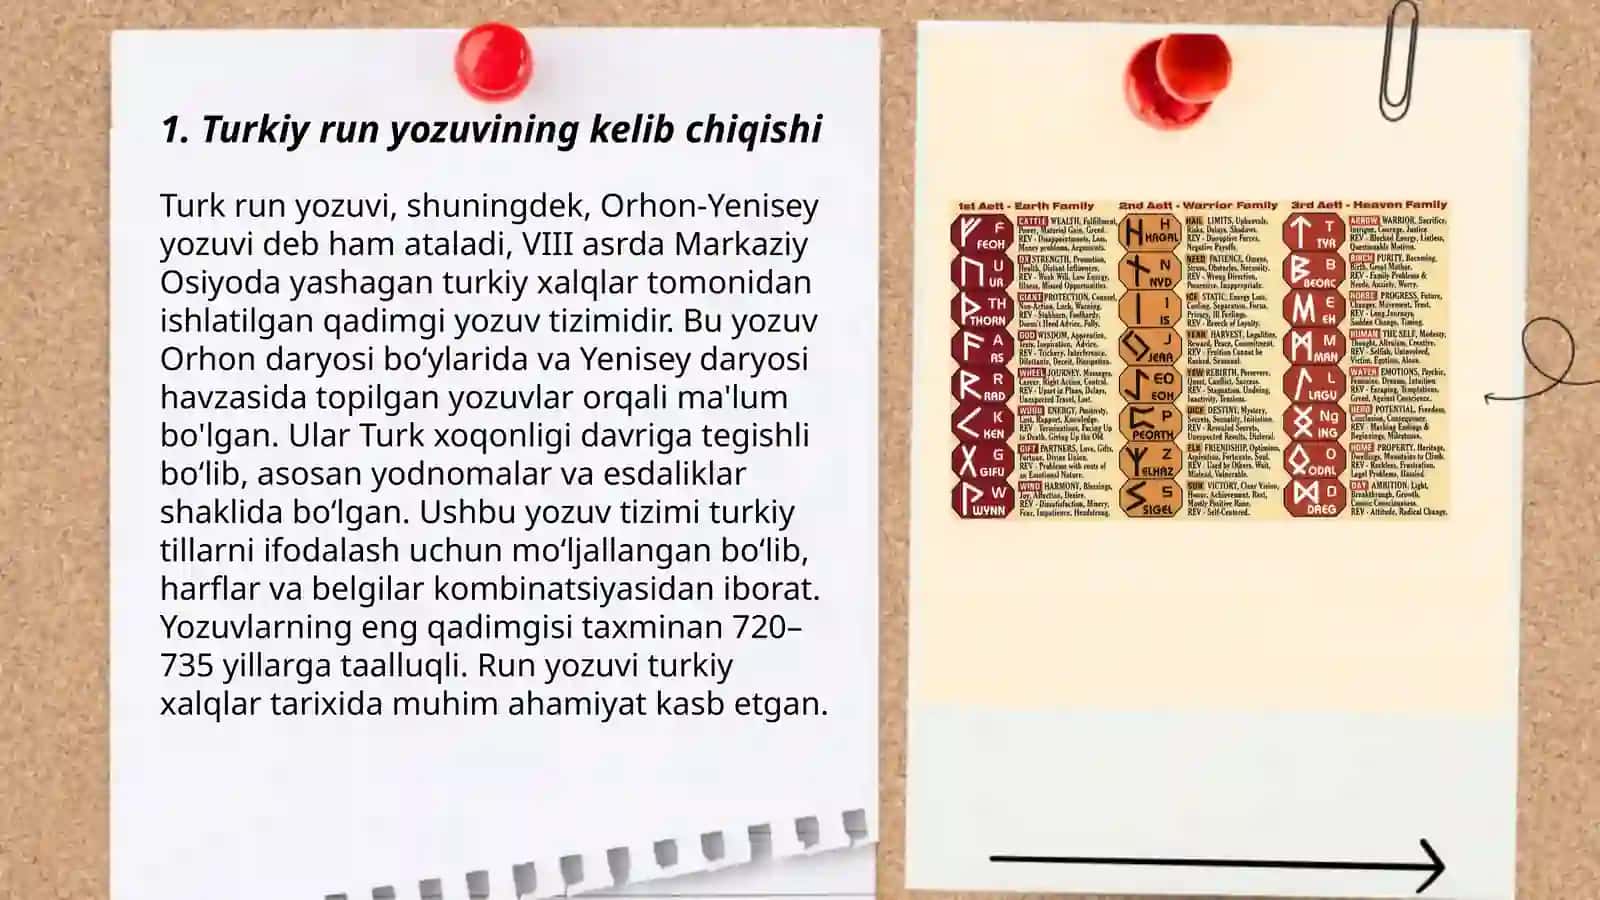 1. Turkiy run yozuvining kelib chiqishi
Turk run yozuvi, shuningdek, Orhon-Yenisey
yozuvi deb ham ataladi, VIII asrda Markaziy
Osiyoda yashagan turkiy xalqlar tomonidan
ishlatilgan qadimgi yozuv tizimidir. Bu yozuv
Orhon daryosi bo‘ylarida va Yenisey daryosi
havzasida topilgan yozuvlar orqali ma'lum
bo'lgan. Ular Turk xoqonligi davriga tegishli
bo‘lib, asosan yodnomalar va esdaliklar
shaklida bo‘lgan. Ushbu yozuv tizimi turkiy
tillarni ifodalash uchun mo‘ljallangan bo‘lib,
harflar va belgilar kombinatsiyasidan iborat.
Yozuvlarning eng qadimgisi taxminan 720–
735 yillarga taalluqli. Run yozuvi turkiy
xalqlar tarixida muhim ahamiyat kasb etgan.
1st Aett - Earth Family
F FEOH
CATTLE WEALTH, Fulfillment,
Power, Material Gain, Greed.
REV - Disappointments, Loss,
Money problems, Arguments.
U UR
OX STRENGTH, Promotion,
Health, Distant Influences.
REV - Weak Will, Low Energy,
Illness, Missed Opportunities.
TH THORN
GIANT PROTECTION, Counsel,
Non-Action, Luck, Warning.
REV - Stubborn, Foolhardy,
Doesn't Heed Advice, Folly.
A AS
GOD WISDOM, Apprentice,
Tests, Inspiration, Advice.
REV - Trickery, Interference,
Dilettante, Deceit, Dissipation.
R RAD
WHEEL JOURNEY, Messages,
Career, Right Action, Control.
REV - Upset in Plans, Delays,
Unexpected Travel, Lost.
K KEN
WOOD ENERGY, Positivity,
Lust, Rapport, Knowledge.
REV - Terminations, Facing Up
to Death, Giving Up the Old.
G GIFU
GIFT PARTNERS, Love, Gifts,
Fortune, Divine Union.
REV - Problems with roots of
an Emotional Nature.
W WYNN
WIND HARMONY, Blessings,
Joy, Affection, Desire.
REV - Dissatisfaction, Misery,
Fear, Impatience, Headstrong.
2nd Aett - Warrior Family
H HAGAL
HAIL LIMITS, Upheavals,
Risks, Delays, Shadows.
REV - Disruptive Forces,
Negative Payoffs.
N NYD
NEED PATIENCE, Omens,
Stress, Obstacles, Necessity.
REV - Wrong Direction,
Possessive, Inappropriate.
I IS
ICE STATIC, Energy Loss,
Cooling, Separation, Focus,
Privacy, Ill Feelings.
REV - Breech of Loyalty.
J JERA
YEAR HARVEST, Legalities,
Reward, Peace, Commitment.
REV - Fruition Cannot be
Rushed, Seasonal.
EO EOH
YEW REBIRTH, Persevere,
Quest, Conflict, Success.
REV - Stagnation, Undoing,
Inactivity, Tension.
P PEORTH
DICE DESTINY, Mystery,
Secrets, Sexuality, Initiation.
REV - Revealed Secrets,
Unexpected Results, Disloyal.
Z ELHAZ
ELK FRIENDSHIP, Optimism,
Aspiration, Fortunate, Soul.
REV - Used by Others, Wait,
Mislead, Vulnerable.
S SIGEL
SUN VICTORY, Clear Vision,
Honor, Achievement, Rest,
Mostly Positive Rune.
REV - Self-Centered.
3rd Aett - Heaven Family
T TYR
ARROW WARRIOR, Sacrifice,
Intrigue, Courage, Justice.
REV - Blocked Energy, Listless,
Questionable Motives.
B BEORC
BIRCH PURITY, Becoming,
Birth, Great Mother.
REV - Family Problems &
Needs, Anxiety, Worry.
E EH
HORSE PROGRESS, Future,
Changes, Movement, Trust.
REV - Long Journeys,
Sudden Change, Timing.
M MAN
HUMAN THE SELF, Modesty,
Thought, Altruism, Creative.
REV - Selfish, Uninvolved,
Victim, Egotism, Alone.
L LAGU
WATER EMOTIONS, Psychic,
Feminine, Dreams, Intuition.
REV - Escaping, Temptations,
Greed, Against Conscience.
Ng ING
HERO POTENTIAL, Freedom,
Conclusion, Consequence.
REV - Marking Endings &
Beginnings, Milestones.
O ODAL
HOME PROPERTY, Heritage,
Dwellings, Mountains to Climb.
REV - Reckless, Frustration,
Legal Problems,
D DAEG
DAY AMBITION, Light,
Breakthrough, Growth,
Cosmic Consciousness.
REV - Attitude, Radical Change.